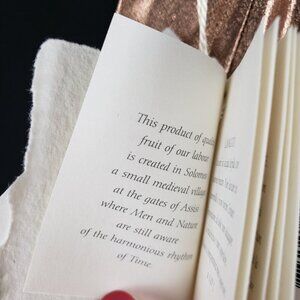 This product of quality
fruit of our labour
is created in Solomeo
a small medieval village
at the gates of Assisi
where Men and Nature
are still aware
of the harmonious rhythm
of Time.